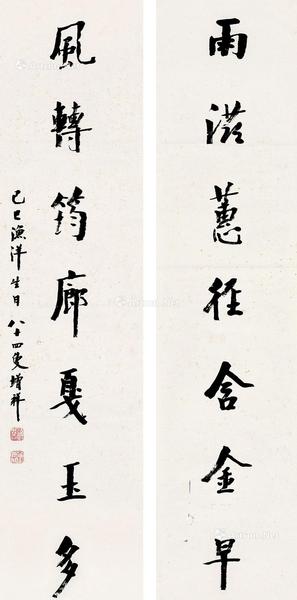 雨滋蕙径含金早
風轉筠廊戛玉多
己巳漁洋生日八十四叟增祥